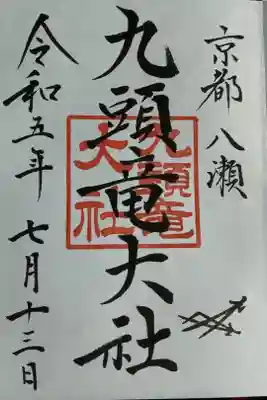 京都八瀬
九頭竜大社
九頭竜
大社
令和五年七月十三日